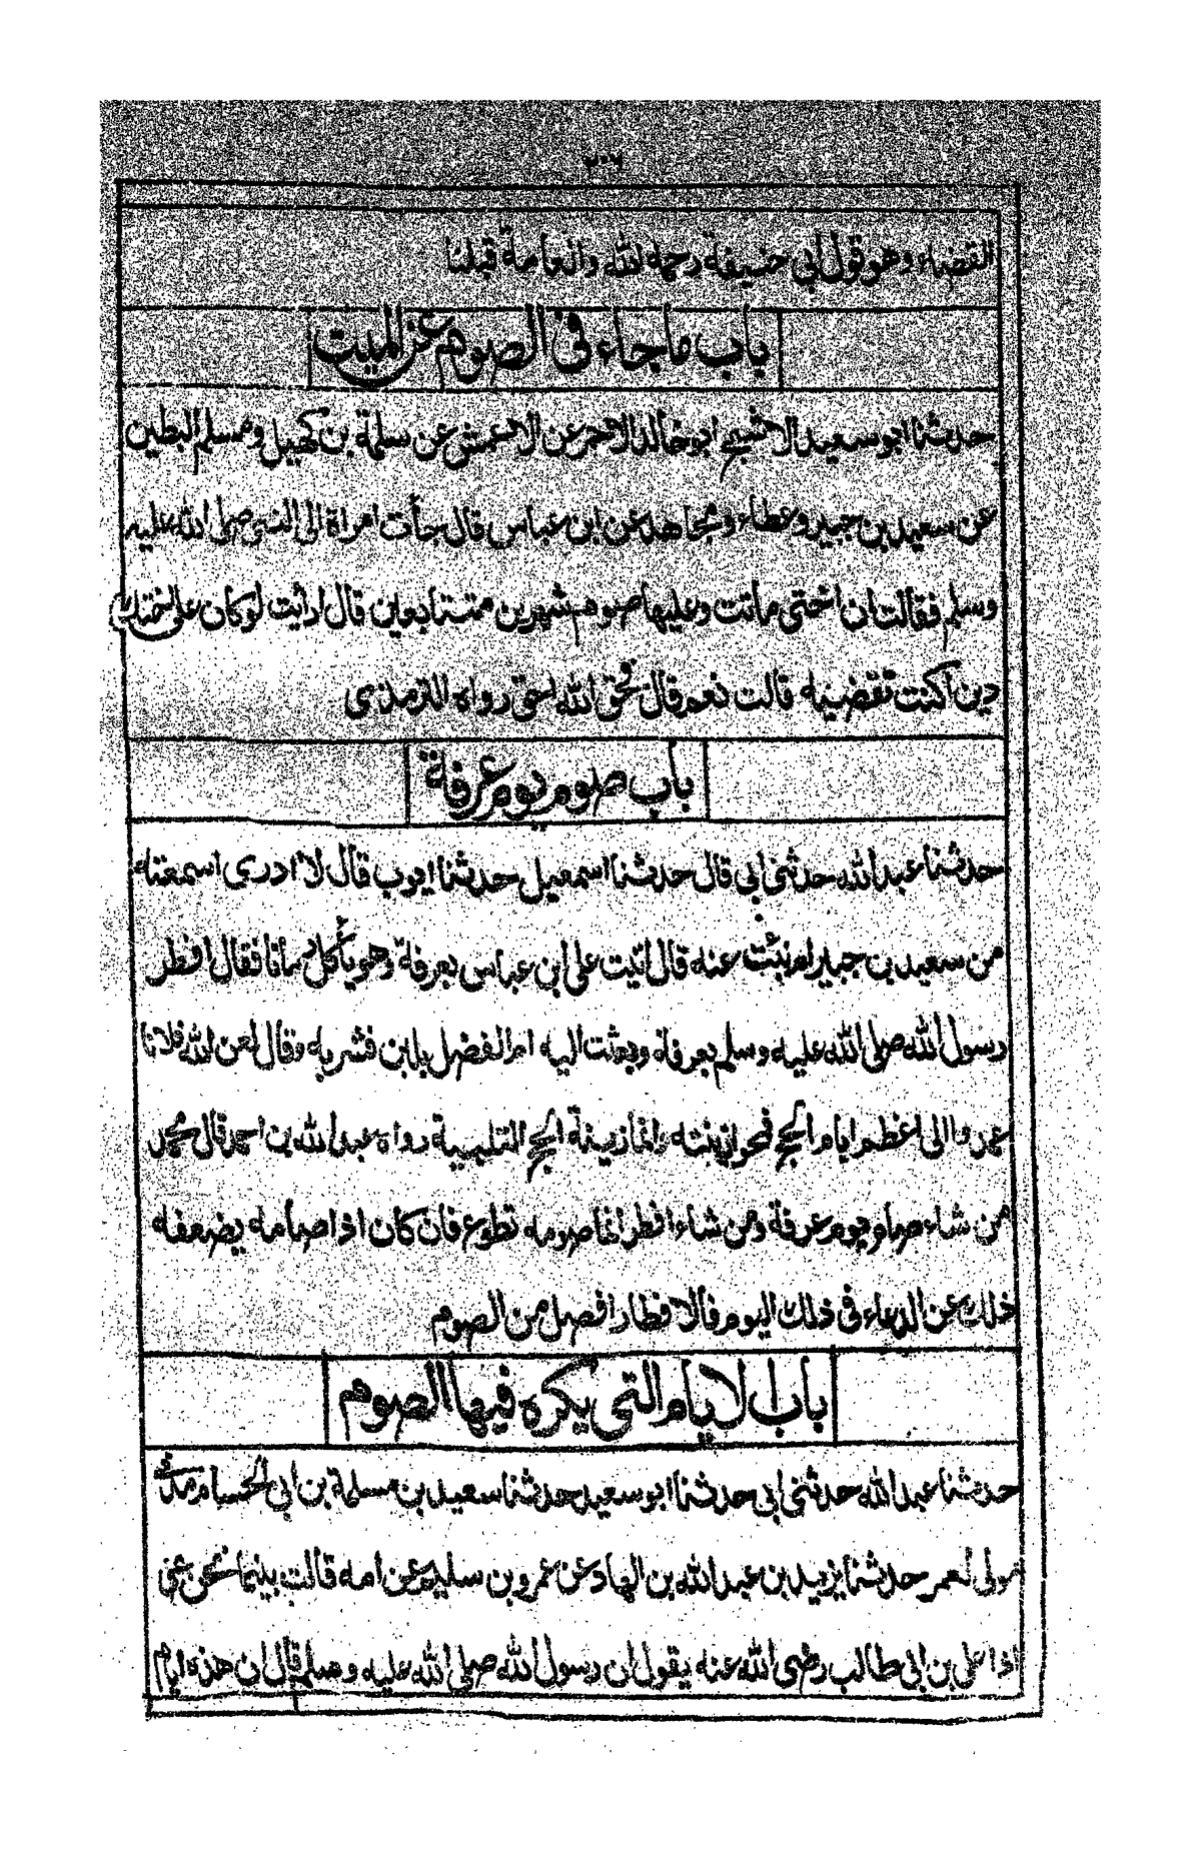 ٢٠٦
القضاء وهو قول أبي حنيفة رحمه الله والعامة قبلنا
باب ما جاء في الصوم عن الميت
حدثنا ابو سعيد الاشج ابو خالد الاحمر عن الاعمش عن سلمة بن كهيل ومسلم البطين
عن سعيد بن جبير وعطاء ومجاهد عن ابن عباس قال جأت امراة الى النبي صلى الله عليه
وسلم فقالت ان اختي ماتت وعليها صوم شهرين متتابعين قال ارأيت لو كان على اختك
دين أكنت تقضينه قالت نعم قال فحق الله احق رواه الترمذي
باب صوم يوم عرفة
حدثنا عبد الله حدثني ابي قال حدثنا اسمعيل حدثنا ايوب قال لا ادري اسمعته
من سعيد بن جبير ام نبئت عنه قال اتيت على ابن عباس بعرفة وهو يأكل رمانا فقال افطر
رسول الله صلى الله عليه وسلم بعرفة وبعثت اليه ام الفضل بلبن فشربه وقال لعن الله فلانا
عمدوا الى اعظم ايام الحج فمحوا زينته وانما زينة الحج التلبية رواه عبد الله بن احمد قال محمد
من شاء صام يوم عرفة ومن شاء افطر انما صومه تطوع فان كان اذا صامه يضعفه
ذلك عن الدعاء في ذلك اليوم فالافطار افضل من الصوم
باب الايام التي يكره فيها الصوم
حدثنا عبد الله حدثني ابي حدثنا ابو سعيد حدثنا سعيد بن مسلمة بن ابي الحسام
مولى لعمر حدثنا يزيد بن عبد الله بن الهاد عن عمرو بن سليم عن امه قالت بينما نحن بمنى
اذا علي بن ابي طالب رضي الله عنه يقول ان رسول الله صلى الله عليه وسلم قال ان هذه ايام